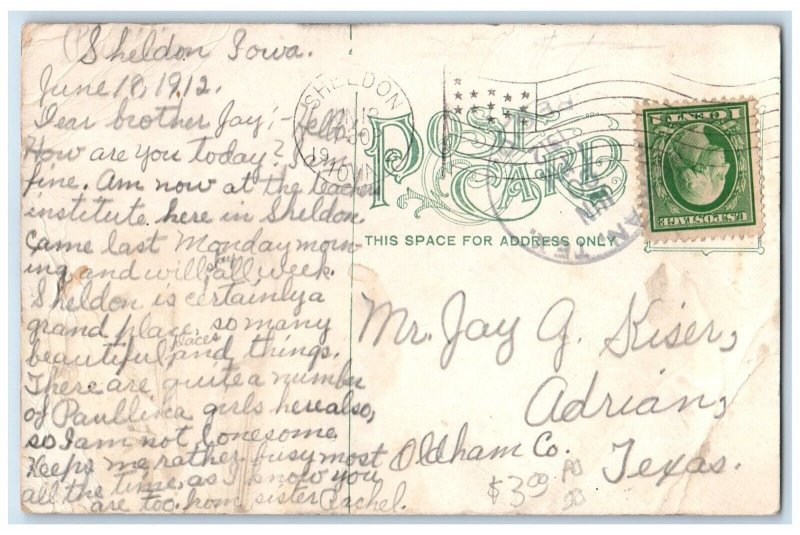 Sheldon Iowa.
June 18, 1912.
Dear brother Jay; - Hello
How are you today? I am
fine. Am now at the teachers
institute here in Sheldon
came last Monday morn-
ing and will all week.
Sheldon is certainly a
grand place, so many
beautiful places and things.
There are quite a number
of Paullina girls here also,
so I am not lonesome.
Keeps me rather busy most
all the time, as I know you
are too. from sister Rachel.
SHELDON
POST CARD
THIS SPACE FOR ADDRESS ONLY.
U.S. POSTAGE
1 CENT 1
Mr. Jay G. Kiser,
Adrian,
Oldham Co.
Texas.
$3.00